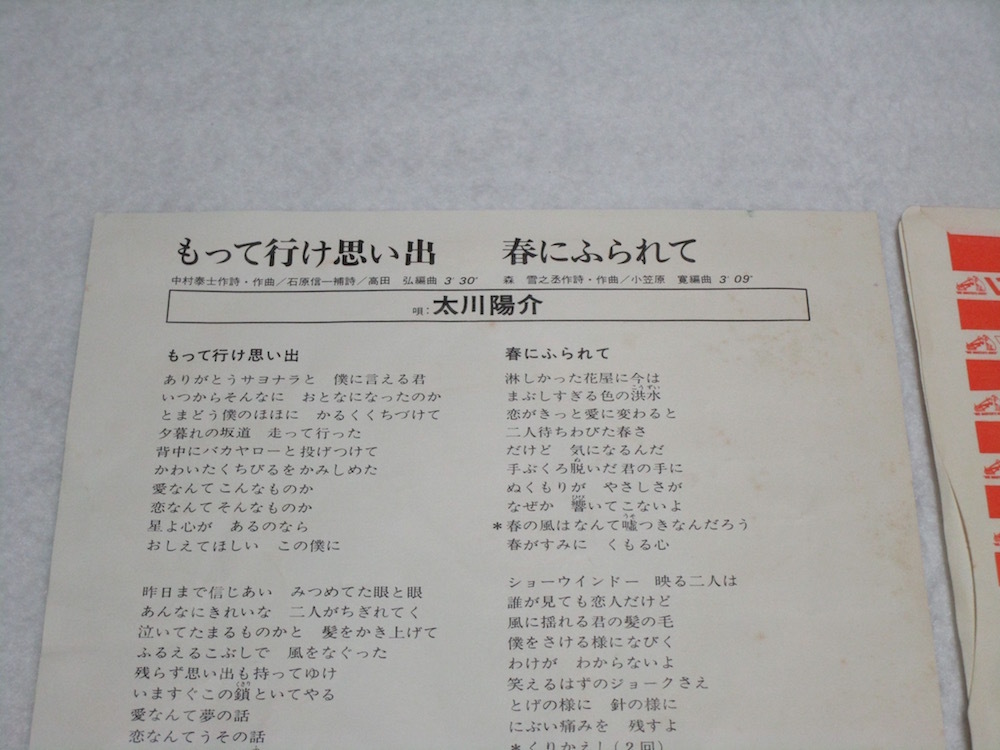 もって行け思い出　春にふられて
中村泰士作詩・作曲／石原信一補詩／高田　弘編曲 3′30″　森　雪之丞作詩・作曲／小笠原　寛編曲 3′09″
唄：太川陽介
もって行け思い出
ありがとうサヨナラと　僕に言える君
いつからそんなに　おとなになったのか
とまどう僕のほほに　かるくくちづけて
夕暮れの坂道　走って行った
背中にバカヤローと投げつけて
かわいたくちびるをかみしめた
愛なんてこんなものか
恋なんてそんなものか
星よ心が　あるのなら
おしえてほしい　この僕に
昨日まで信じあい　みつめてた眼と眼
あんなにきれいな　二人がちぎれてく
泣いてたまるものかと　髪をかき上げて
ふるえるこぶしで　風をなぐった
残らず思い出も持ってゆけ
いますぐこの鎖といてやる
愛なんて夢の話
恋なんてうその話
春にふられて
淋しかった花屋に今は
まぶしすぎる色の洪水
恋がきっと愛に変わると
二人待ちわびた春さ
だけど　気になるんだ
手ぶくろ脱いだ君の手に
ぬくもりが　やさしさが
なぜか　響いてこないよ
＊春の風はなんて嘘つきなんだろう
春がすみに　くもる心
ショーウインドー　映る二人は
誰が見ても恋人だけど
風に揺れる君の髪の毛
僕をさける様になびく
わけが　わからないよ
笑えるはずのジョークさえ
とげの様に　針の様に
にぶい痛みを　残すよ
＊くりかえし（2回）